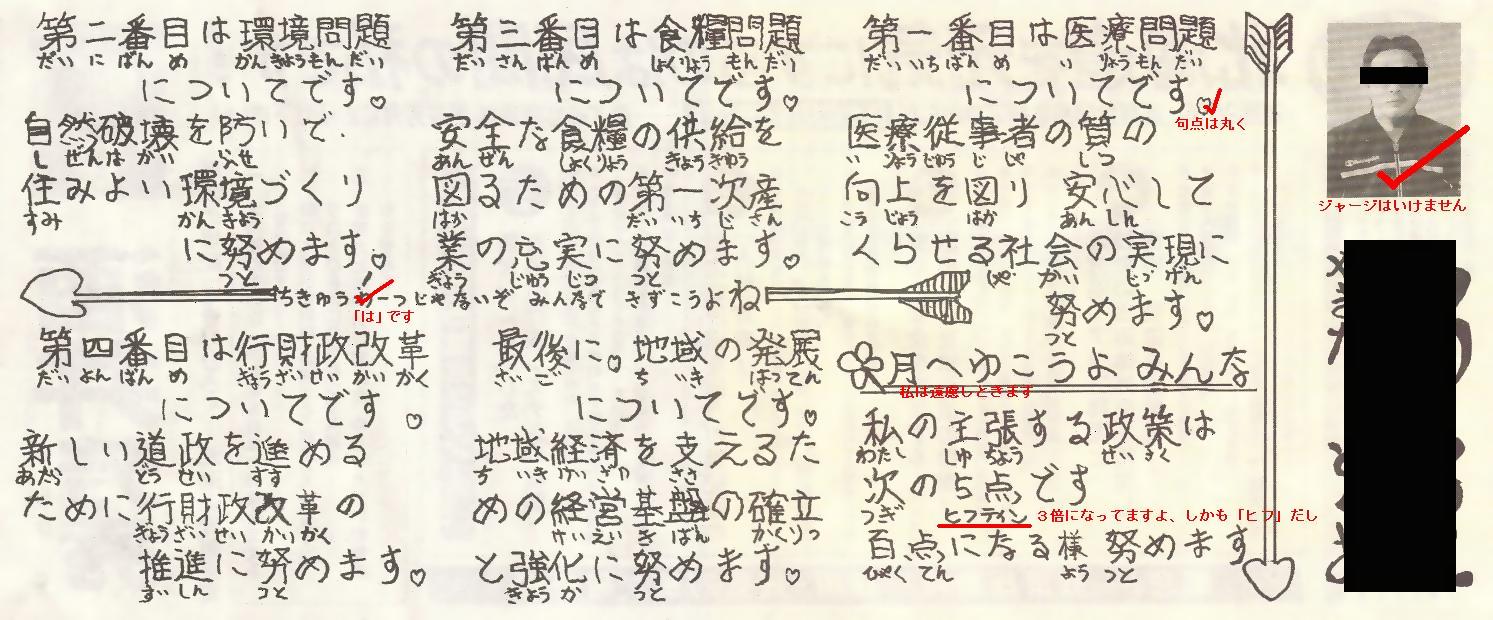 第一番目は医療問題
だい いち ばん め い りょう もん だい
についてです。♡
句点は丸く
医療従事者の質の
い りょう じゅう じ しゃ しつ
向上を図り 安心して
こう じょう はか あん しん
くらせる社会の実現に
しゃ かい じつ げん
努めます。♡
つと
月へゆこうよ みんな
私は遠慮しときます
私の主張する政策は
わたし しゅ ちょう せい さく
次の5点です
つぎ ヒフテイン
3倍になってますよ、しかも「ヒフ」だし
百点になる様 努めます
ひゃく てん よう つと
第三番目は食糧問題
だい さん ばん め しょくりょう もん だい
についてです。♡
安全な食糧の供給を
あん ぜん しょくりょう きょう きゅう
図るための第一次産
はか だい いち じ さん
業の充実に努めます。♡
ぎょう じゅう じつ つと
第二番目は環境問題
だい に ばん め かん きょう もん だい
についてです。♡
自然破壊を防いで、
し ぜん は かい ふせ
住みよい環境づくり
すみ かん きょう
に努めます。♡
つと
ちきゅうわ一つじゃないぞ みんなで きずこうよね
「は」です
最後に。地域の発展
さい ご ち いき はっ てん
についてです。♡
地域経済を支えるた
ち いき けい ざい ささ
めの経営基盤の確立
けい えい き ばん かくりつ
と強化に努めます。♡
きょう か つと
第四番目は行財政改革
だい よん ばん め ぎょう ざい せい かい かく
についてです。♡
新しい道政を進める
あたら どう せい すす
ために行財政改革の
ぎょう ざい せい かい かく
推進に努めます。♡
すい しん つと
ジャージはいけません